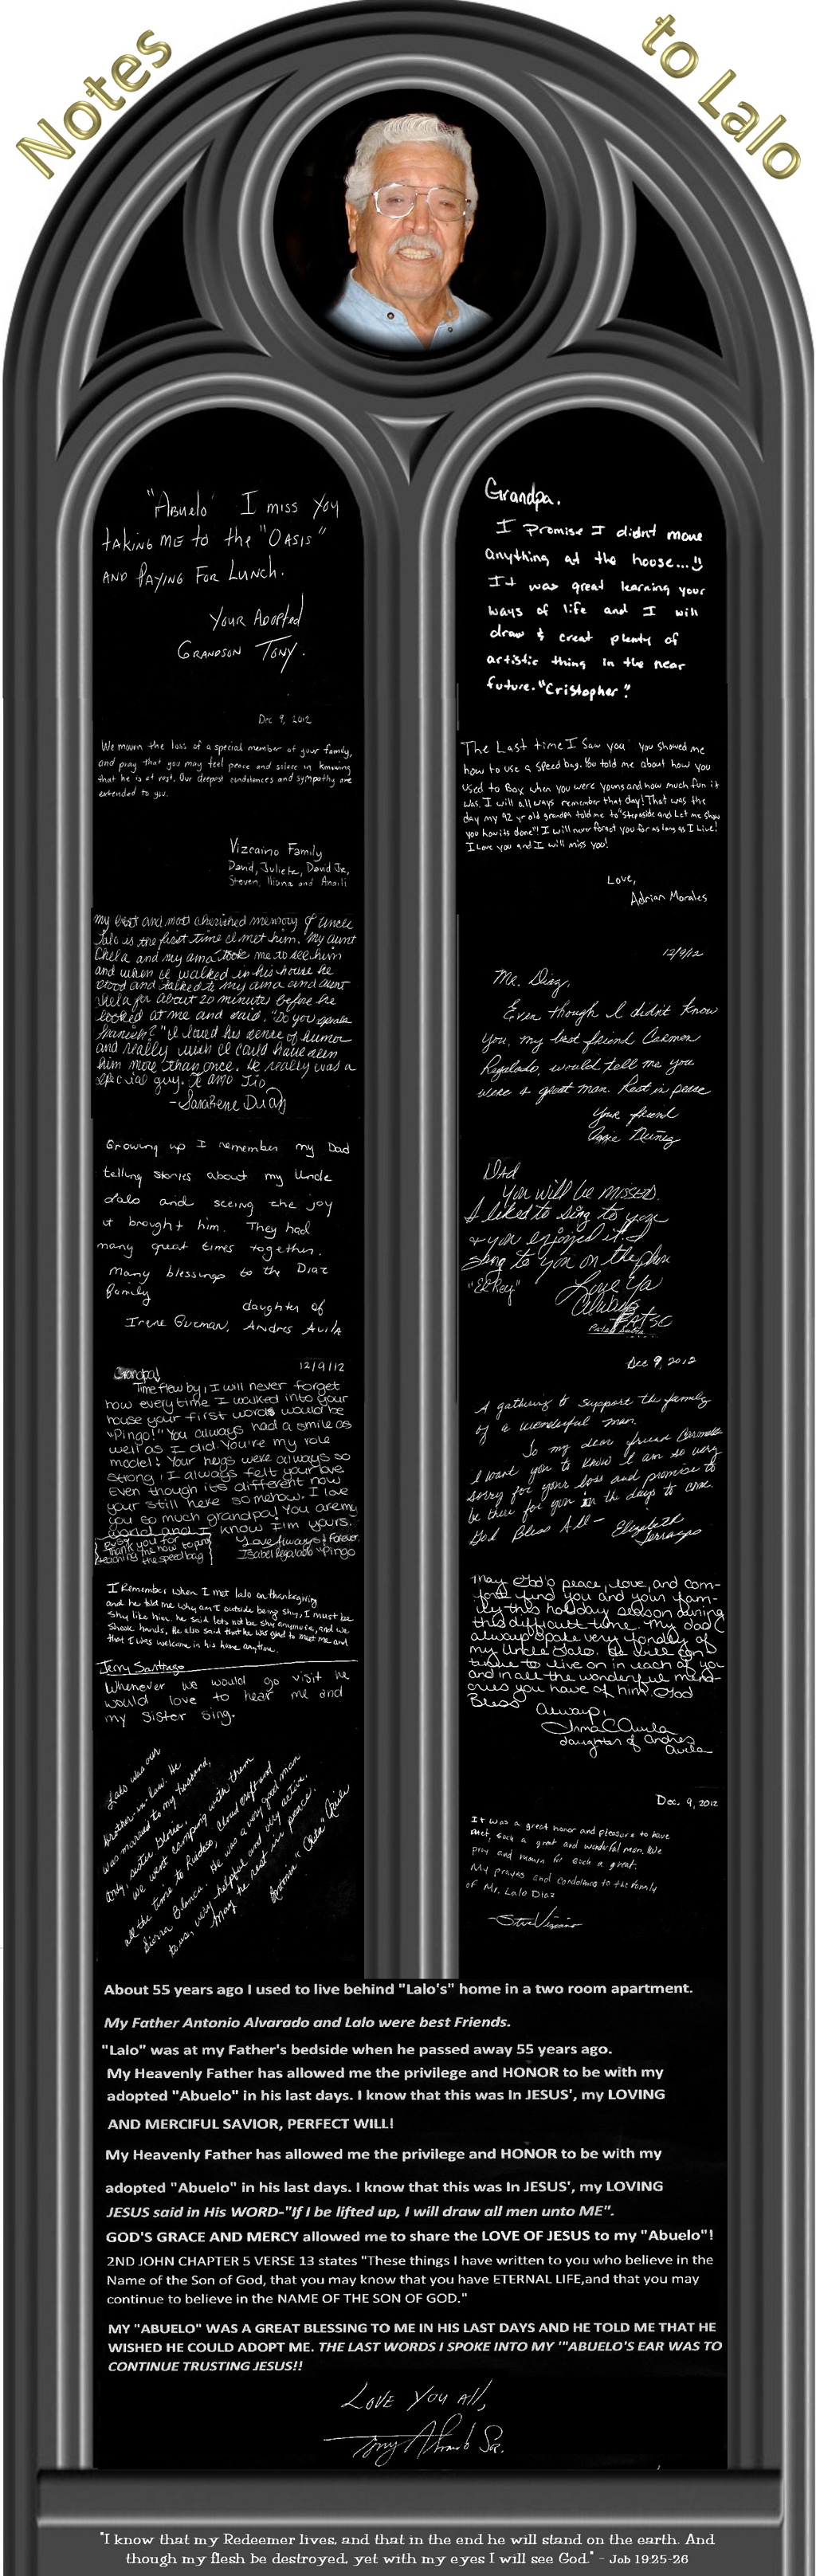 Notes to Lalo
"Abuelo" I miss you
taking me to the "Oasis"
and paying for lunch.
Your Adopted
Grandson Tony.
Dec 9, 2012
We mourn the loss of a special member of your family,
and pray that you may feel peace and solace in knowing
that he is at rest. Our deepest condolences and sympathy are
extended to you.
Vizcaino Family
David, Juliete, David Jr,
Steven, Iliana and Anaili
my best and most cherished memory of Uncle
Lalo is the first time I met him. My aunt
Chela and my ama took me to see him
and when I walked in his house he
stood and talked to my ama and aunt
Chela for about 20 minutes before he
looked at me and said, "Do you speak
Spanish?" I loved his sense of humor
and really wish I could have seen
him more than once. He really was a
special guy. Te amo Tio
- SaraRene Diaz
Growing up I remember my Dad
telling stories about my Uncle
Lalo and seeing the joy
it brought him. They had
many great times together.
Many blessings to the Diaz
family
daughter of
Irene Guzman, Andres Avila
12/9/12
Grandpa!
Time flew by, I will never forget
how every time I walked into your
house your first words would be
"Pingo!" You always had a smile as
well as I did. You're my role
model! Your hugs were always so
strong, I always felt your love
Even though its different now
your still here somehow. I love
you so much grandpa! You are my
and I know I'm yours.
Thank you for
teaching me how to
the speed bag
Love Always & Forever,
Isabel Regalado "Pingo
I Remember when I met lalo on thanksgiving
and he told me why am I outside being shy, I must be
shy like him. he said lets not be shy anymore, and we
shook hands, He also said that he was glad to meet me and
that I was welcome in his home anytime.
Jerry Santiago
Whenever we would go visit he
would love to hear me and
my sister sing.
Lalo was our
brother-in-law. He
was married to my husband,
sister Gloria.
we went camping with them
all the time to Ruidoso, Cloudcroft and
Sierra Blanca. He was a very good man
to us, very helpful and very active.
May he rest in peace.
Antonia "Avila
Grandpa.
I Promise I didn't move
anything at the house...
It was great learning your
ways of life and I will
draw & creat plenty of
artistic thing in the near
future. "Cristopher"
The Last time I Saw you you showed me
how to use a speed bag. You told me about how you
used to Box when you were young and how much fun it
was. I will all ways remember that day! That was the
day my 92 yr old grandpa told me to "Step aside and Let me show
you how its done"! I will never forget you for as long as I Live!
I Love you and I will miss you!
Love,
Adrian Morales
12/9/12
Mr. Diaz,
Even though I didn't know
you, my best friend Carmen
Regalado, would tell me you
were a great man. Rest in peace
Your friend
Nuñez
Dad
You will be missed.
I liked to sing to you
& you enjoyed it. I
sang to you on the phone
"El Rey"
Love Ya
Always
Dec 9, 2012
A gathering to support the family
of a wonderful man.
To my dear friend Carmen
I want you to know I am so very
sorry for your loss and promise to
be there for you in the days to come.
God Bless All - Elizabeth
May God's peace, love, and com-
fort find you and your fam-
ily this holiday season during
this difficult time. My dad
always spoke very fondly of
my Uncle Lalo. He will con-
tinue to live on in each of you
and in all the wonderful mem-
ories you have of him. God
Bless
Always,
Irma C Avila
daughter of Andres
Avila
Dec. 9, 2012
It was a great honor and pleasure to have
met, such a great and wonderful man. We
pray and mourn for such a great.
My prayers and condolences to the family
of Mr. Lalo Diaz
About 55 years ago I used to live behind "Lalo's" home in a two room apartment.
My Father Antonio Alvarado and Lalo were best Friends.
"Lalo" was at my Father's bedside when he passed away 55 years ago.
My Heavenly Father has allowed me the privilege and HONOR to be with my
adopted "Abuelo" in his last days. I know that this was In JESUS', my LOVING
AND MERCIFUL SAVIOR, PERFECT WILL!
My Heavenly Father has allowed me the privilege and HONOR to be with my
adopted "Abuelo" in his last days. I know that this was In JESUS', my LOVING
JESUS said in His WORD-"If I be lifted up, I will draw all men unto ME".
GOD'S GRACE AND MERCY allowed me to share the LOVE OF JESUS to my "Abuelo"!
2ND JOHN CHAPTER 5 VERSE 13 states "These things I have written to you who believe in the
Name of the Son of God, that you may know that you have ETERNAL LIFE,and that you may
continue to believe in the NAME OF THE SON OF GOD."
MY "ABUELO" WAS A GREAT BLESSING TO ME IN HIS LAST DAYS AND HE TOLD ME THAT HE
WISHED HE COULD ADOPT ME. THE LAST WORDS I SPOKE INTO MY '"ABUELO'S EAR WAS TO
CONTINUE TRUSTING JESUS!!
Love you all,
Tony Sr.
"I know that my Redeemer lives, and that in the end he will stand on the earth. And
though my flesh be destroyed, yet with my eyes I will see God." - Job 19:25-26